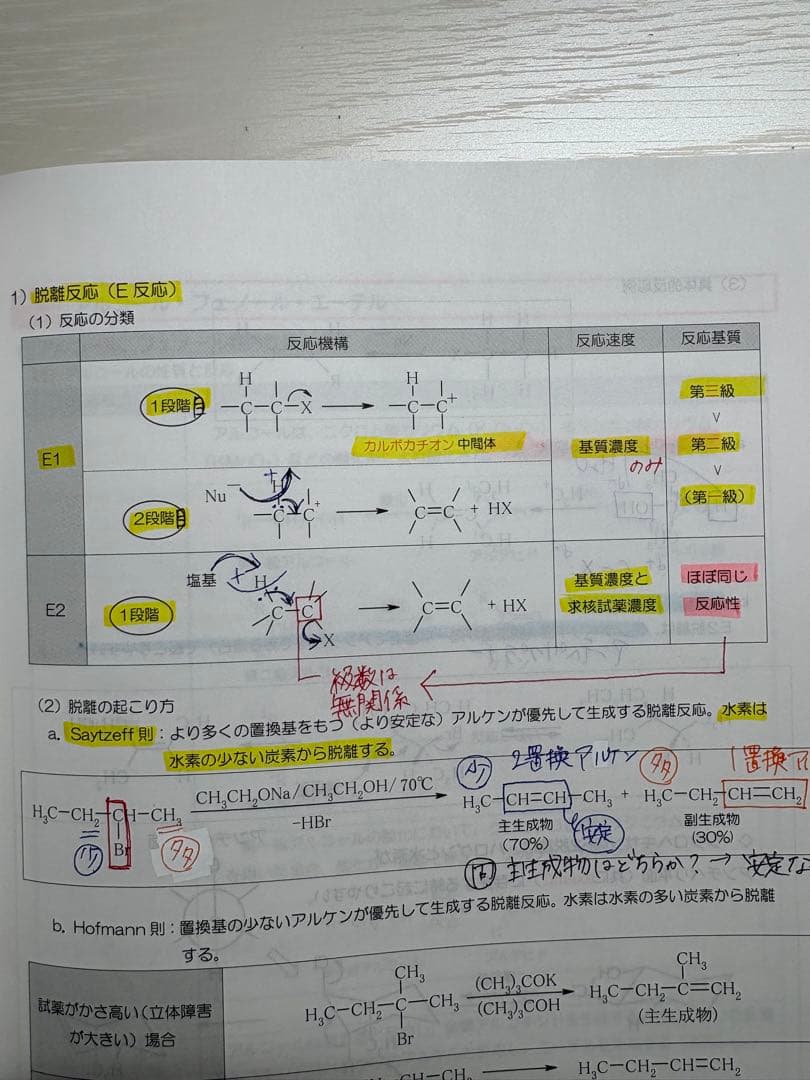 1) 脱離反応（E 反応）
(1) 反応の分類
反応機構 反応速度 反応基質
E1
1段階目
H
—C—C—X → —C—C+
H
カルボカチオン中間体
基質濃度
のみ
第三級
∨
第二級
∨
(第一級)
2段階目
Nu−
+
H
C—C+ → C=C + HX
E2
1段階
塩基
+
H
C—C → C=C + HX
X
基質濃度と
求核試薬濃度
ほぼ同じ
反応性
級数は
無関係
(2) 脱離の起こり方
a. Saytzeff 則：より多くの置換基をもつ（より安定な）アルケンが優先して生成する脱離反応。水素は
水素の少ない炭素から脱離する。
少 2置換アルケン 多 1置換ア
H3C—CH2—CH—CH3
Br
少 多
CH3CH2ONa/CH3CH2OH/70℃
−HBr
H3C—CH=CH—CH3 + H3C—CH2—CH=CH2
主生成物 副生成物
(70%) 安定 (30%)
問 主生成物はどちらか？→安定な
b. Hofmann 則：置換基の少ないアルケンが優先して生成する脱離反応。水素は水素の多い炭素から脱離
する。
試薬がかさ高い（立体障害
が大きい）場合
CH3
H3C—CH2—C—CH3
Br
(CH3)3COK
(CH3)3COH
CH3
H3C—CH2—C=CH2
(主生成物)
H3C—CH2—CH=CH2